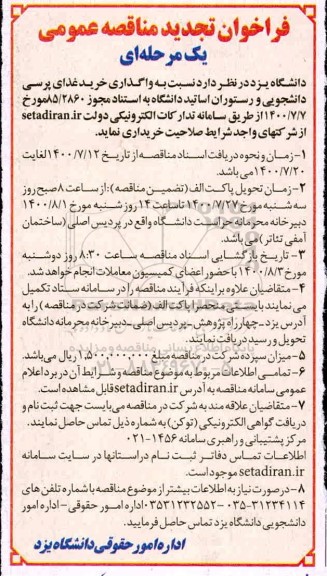 فراخوان تجدید مناقصه عمومی
یک مرحله‌ای
دانشگاه یزد در نظر دارد نسبت به واگذاری خرید غذای پرسی
دانشجویی و رستوران اساتید دانشگاه به استناد مجوز ۸۵/۲۸۶۰ مورخ
۱۴۰۰/۷/۷ از طریق سامانه تدارکات الکترونیکی دولت setadiran.ir
از شرکتهای واجد شرایط صلاحیت خریداری نماید.
۱- زمان و نحوه دریافت اسناد مناقصه از تاریخ ۱۴۰۰/۷/۱۲ لغایت
۱۴۰۰/۷/۲۰ می باشد.
۲- زمان تحویل پاکت الف (تضمین مناقصه): از ساعت ۸ صبح روز
سه شنبه مورخ ۱۴۰۰/۷/۲۷ تا ساعت ۱۴ روز شنبه مورخ ۱۴۰۰/۸/۱
دبیرخانه محرمانه حراست دانشگاه واقع در پردیس اصلی (ساختمان
آمفی تئاتر) می باشد.
۳- تاریخ بازگشایی اسناد مناقصه ساعت ۸:۳۰ روز دوشنبه
مورخ ۱۴۰۰/۸/۳ با حضور اعضای کمیسیون معاملات انجام خواهد شد.
۴- متقاضیان علاوه بر اینکه فرآیند مناقصه را در سامانه ستاد تکمیل
می نمایند بایستی منحصرا پاکت الف (ضمانت شرکت در مناقصه) را به
آدرس یزد-چهارراه پژوهش-پردیس اصلی-دبیرخانه محرمانه دانشگاه
تحویل و رسید دریافت نمایند.
۵- میزان سپرده شرکت در مناقصه مبلغ ۱,۵۰۰,۰۰۰,۰۰۰ ریال می باشد.
۶- تمامی اطلاعات مربوط به موضوع مناقصه و شرایط آن در برد اعلام
عمومی سامانه مناقصه به آدرس setadiran.ir قابل مشاهده است.
۷- متقاضیان علاقه مند به شرکت در مناقصه می بایست جهت ثبت نام و
دریافت گواهی الکترونیکی (توکن) به شماره ذیل تماس حاصل نمایند.
مرکز پشتیبانی و راهبری سامانه ۱۴۵۶-۰۲۱
اطلاعات تماس دفاتر ثبت نام در استانها در سایت سامانه
setadiran.ir موجود است.
۸- در صورت نیاز به اطلاعات بیشتر از موضوع مناقصه با شماره تلفن های
۰۳۵-۳۱۲۳۴۱۱۴ اداره امور حقوقی - ۰۳۵۳۱۲۳۲۵۵۲ اداره امور
دانشجویی دانشگاه یزد تماس حاصل فرمایید.
اداره امور حقوقی دانشگاه یزد